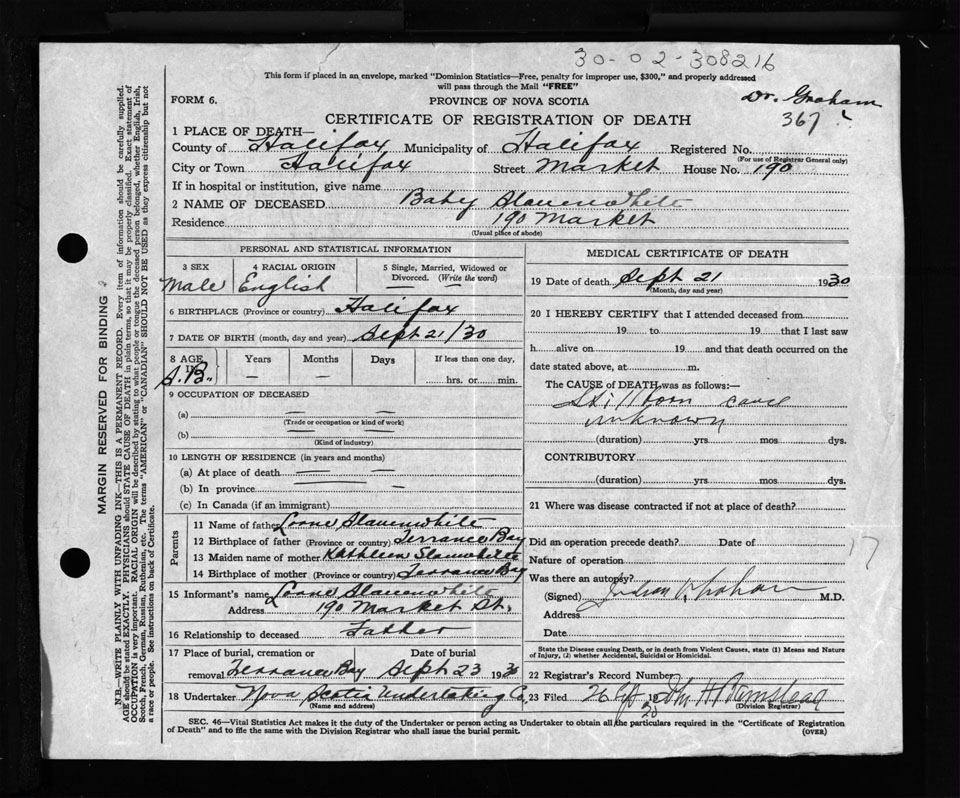 30-02-308216
This form if placed in an envelope, marked "Dominion Statistics—Free, penalty for improper use, $300," and properly addressed
will pass through the Mail "FREE"
FORM 6.
PROVINCE OF NOVA SCOTIA
Dr. Graham
CERTIFICATE OF REGISTRATION OF DEATH
367
1 PLACE OF DEATH—
County of Halifax Municipality of Halifax Registered No.
(For use of Registrar General only)
City or Town Halifax Street Market House No. 190
If in hospital or institution, give name
2 NAME OF DECEASED Baby Slauenwhite
Residence 190 Market
(Usual place of abode)
PERSONAL AND STATISTICAL INFORMATION
3 SEX Male
4 RACIAL ORIGIN English
5 Single, Married, Widowed or Divorced. (Write the word) —
6 BIRTHPLACE (Province or country) Halifax
7 DATE OF BIRTH (month, day and year) Sept 21/30
8 AGE IN S.B. Years — Months — Days — If less than one day, hrs. or min.
9 OCCUPATION OF DECEASED
(a) — —
(Trade or occupation or kind of work)
(b) — —
(Kind of industry)
10 LENGTH OF RESIDENCE (in years and months)
(a) At place of death — —
(b) In province — —
(c) In Canada (if an immigrant)
Parents
11 Name of father Slauenwhite
12 Birthplace of father (Province or country) Terrance Bay
13 Maiden name of mother Kathleen Slauenwhite
14 Birthplace of mother (Province or country) Terrance Bay
15 Informant's name Slauenwhite
Address 190 Market St.
16 Relationship to deceased Father
17 Place of burial, cremation or removal Terrance Bay Date of burial Sept 23 1930
18 Undertaker Nova Scotia Undertaking Co.
(Name and address)
MEDICAL CERTIFICATE OF DEATH
19 Date of death Sept 21 1930
(Month, day and year)
20 I HEREBY CERTIFY that I attended deceased from
19 to 19 that I last saw
h alive on 19 and that death occurred on the
date stated above, at m.
The CAUSE of DEATH was as follows:—
Stillborn cause
unknown
(duration) yrs. mos. dys.
CONTRIBUTORY
(duration) yrs. mos. dys.
21 Where was disease contracted if not at place of death?
Did an operation precede death? Date of
Nature of operation
Was there an autopsy?
(Signed) Graham M.D.
Address
Date
State the Disease causing Death, or in death from Violent Causes, state (1) Means and Nature
of Injury, (2) whether Accidental, Suicidal or Homicidal.
22 Registrar's Record Number
23 Filed 26 Sept 1930
(Division Registrar)
SEC. 46—Vital Statistics Act makes it the duty of the Undertaker or person acting as Undertaker to obtain all the particulars required in the "Certificate of Registration
of Death" and to file the same with the Division Registrar who shall issue the burial permit.
(OVER)
MARGIN RESERVED FOR BINDING
N.B.—WRITE PLAINLY WITH UNFADING INK—THIS IS A PERMANENT RECORD. Every item of information should be carefully supplied.
AGE should be stated EXACTLY. PHYSICIANS should STATE CAUSE OF DEATH in plain terms, so that it may be properly classified. Exact statement of
OCCUPATION is very important. RACIAL ORIGIN will be described by stating to what people or tongue the deceased person belonged, whether English, Irish,
Scotch, French, German, Russian, Ruthenian, etc. The terms "AMERICAN" or "CANADIAN" SHOULD NOT BE USED as they express citizenship but not
a race or people. See instructions on back of Certificate.